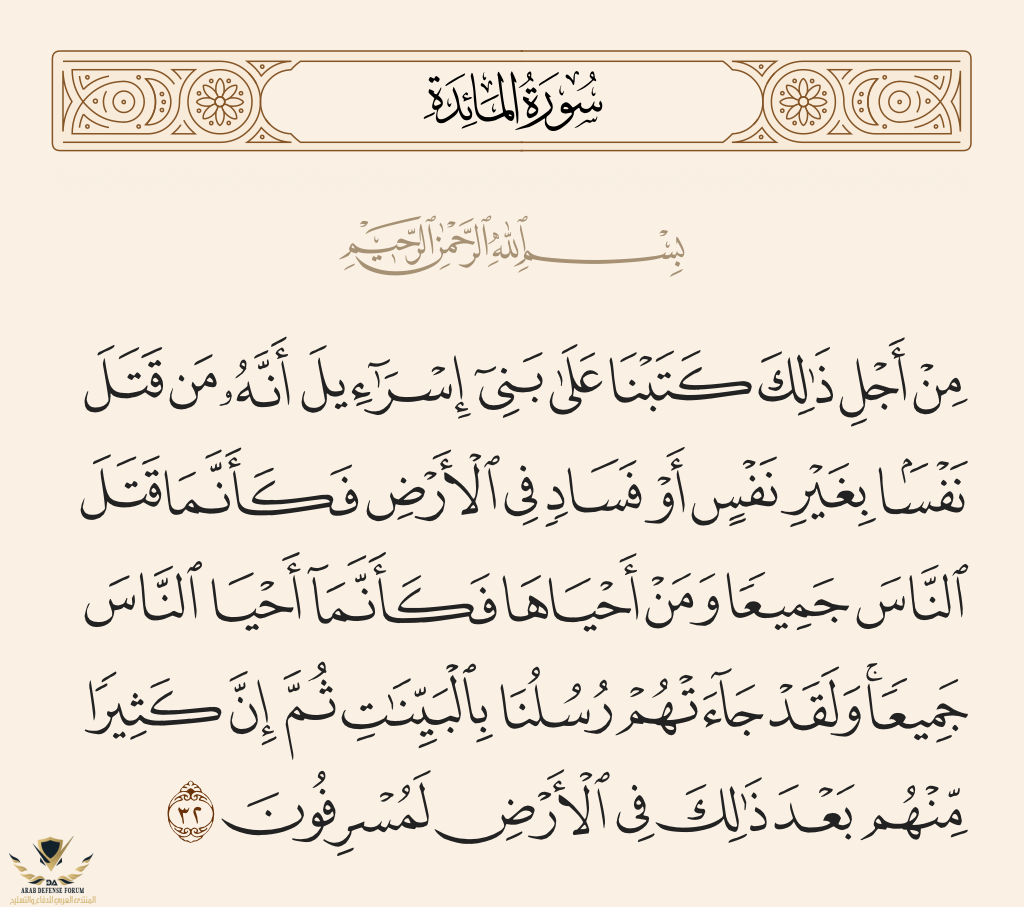 سُورَةُ المَائِدَةِ
بِسْمِ ٱللَّهِ ٱلرَّحْمَٰنِ ٱلرَّحِيمِ
مِنْ أَجْلِ ذَٰلِكَ كَتَبْنَا عَلَىٰ بَنِىٓ إِسْرَـٰٓءِيلَ أَنَّهُۥ مَن قَتَلَ
نَفْسًۢا بِغَيْرِ نَفْسٍ أَوْ فَسَادٍ فِى ٱلْأَرْضِ فَكَأَنَّمَا قَتَلَ
ٱلنَّاسَ جَمِيعًا وَمَنْ أَحْيَاهَا فَكَأَنَّمَآ أَحْيَا ٱلنَّاسَ
جَمِيعًا ۚ وَلَقَدْ جَآءَتْهُمْ رُسُلُنَا بِٱلْبَيِّنَـٰتِ ثُمَّ إِنَّ كَثِيرًا
مِّنْهُم بَعْدَ ذَٰلِكَ فِى ٱلْأَرْضِ لَمُسْرِفُونَ ٣٢
DA
ARAB DEFENSE FORUM
المنتدى العربي للدفاع والتسليح